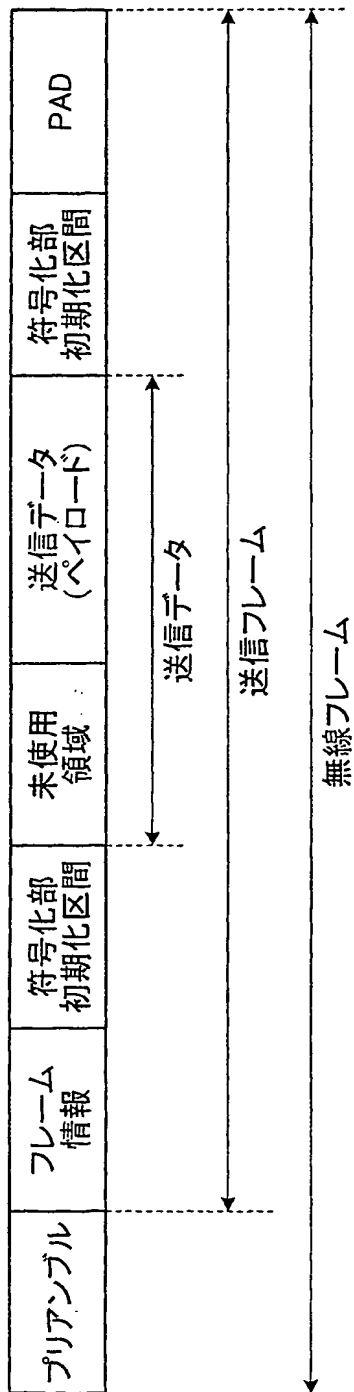 プリアンブル
フレーム
情報
符号化部
初期化区間
未使用
領域
送信データ
(ペイロード)
符号化部
初期化区間
PAD
送信データ
送信フレーム
無線フレーム